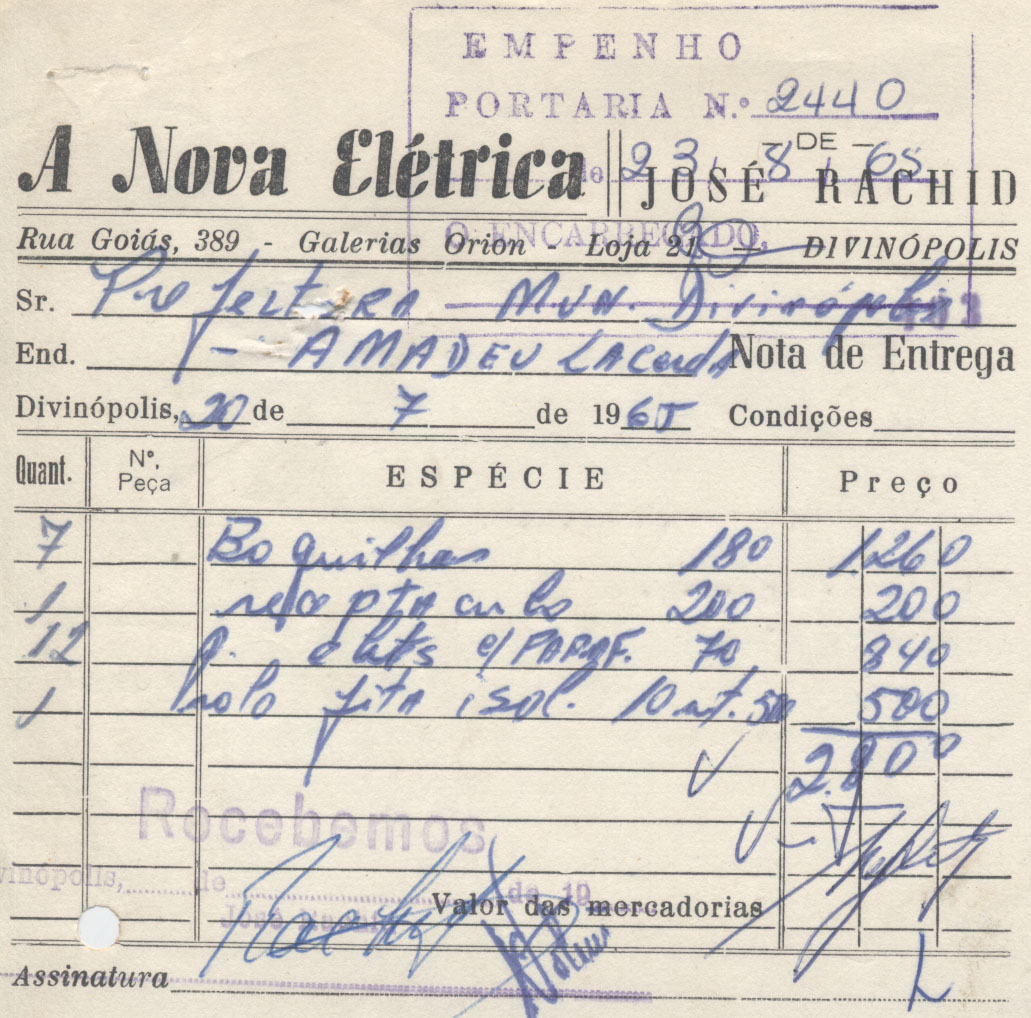 EMPENHO
PORTARIA N.º 2440
A Nova Elétrica
- DE -
JOSÉ RACHID
de 23, 8, 65
O ENCARREGADO,
Rua Goiás, 389 - Galerias Orion - Loja 21 - DIVINÓPOLIS
Sr. Prefeitura Mun. Divinópolis
End. - AMADEU Lacerda
Nota de Entrega
Divinópolis, 20 de 7 de 1965 Condições
Quant. Nº. Peça ESPÉCIE Preço
7 Boquilhas 180 1260
1 receptaculo 200 200
12 c/ PARAF. 70 840
1 rolo fita isol. 10 mt. 500 500
2.800
Recebemos
Divinópolis, de de 19
Valor das mercadorias
Assinatura